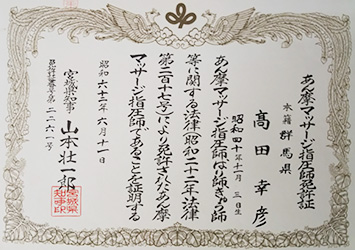 あん摩マツサージ指圧師免許証
本籍 群馬県
髙田幸彦
昭和四十年十一月三日生
あん摩マツサージ指圧師はり師きゅう師
等に関する法律(昭和二十二年法律
第二百十七号)により免許されたあん摩
マツサージ指圧師であることを証明する
昭和六十二年六月十一日
宮城県知事 山本壮一郎
宮城県知事印